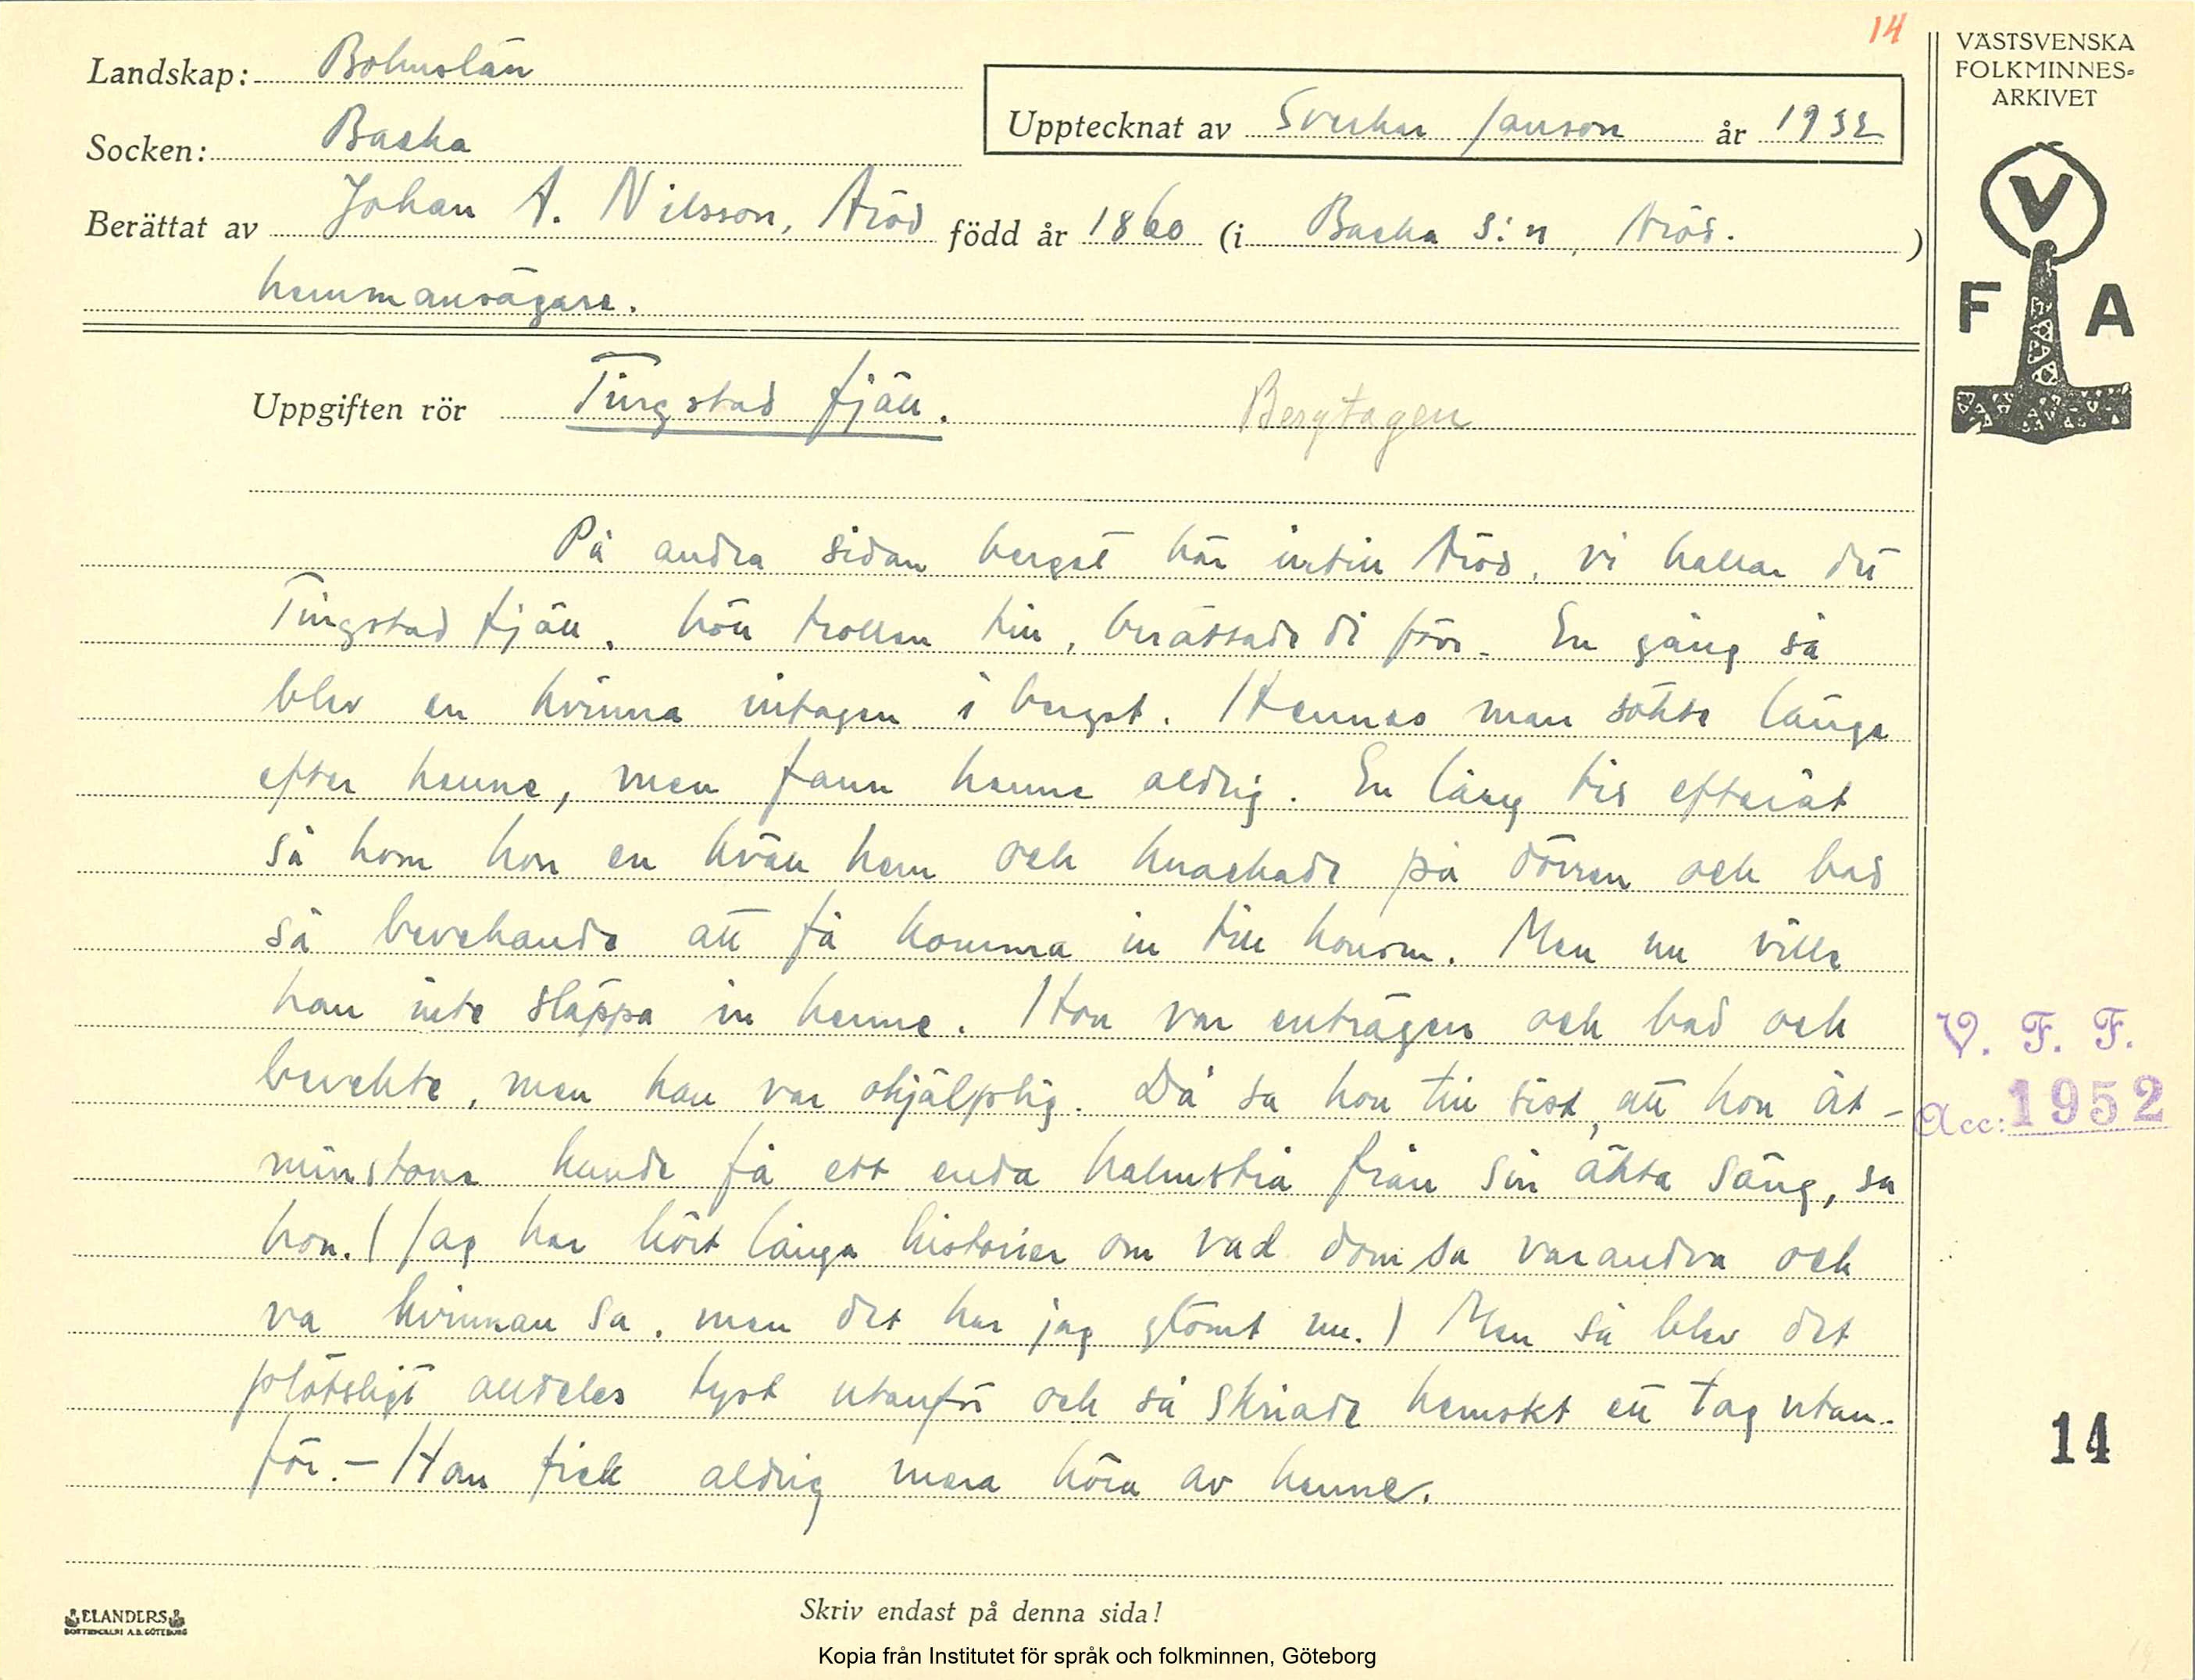 14
VÄSTSVENSKA
FOLKMINNES-
ARKIVET
Landskap: Bohuslän
Socken: Backa
Upptecknat av Sverker Janson år 1932
Berättat av Johan A. Nilsson, Aröd född år 1860 (i Backa s:n, Aröd. )
hemmansägare.
V
F A
Uppgiften rör Tingstad fjäll. Bergtagen
På andra sidan berget här intill Aröd, vi kallar det
Tingstad fjäll, höll trollen till, berättade di förr. En gång så
blev en kvinna intagen i berget. Hennes man sökte länge
efter henne, men fann henne aldrig. En lång tid efteråt
så kom hon en kväll hem och knackade på dörren och bad
så bevekande att få komma in till honom. Men nu ville
han inte släppa in henne. Hon var enträgen och bad och
bevekte, men han var ohjälplig. Då sa hon till sist, att hon åt-
minstone kunde få ett enda halmstrå från sin äkta säng, sa
hon. (Jag har hört långa historier om vad dom sa varandra och
va kvinnan sa, men det har jag glömt nu.) Men så blev det
plötsligt alldeles tyst utanför och så skriade hemskt ett tag utan-
för. – Han fick aldrig mera höra av henne.
V. F. F.
Acc: 1952
14
Skriv endast på denna sida!
ELANDERS
BOKTRYCKERI A.B. GÖTEBORG
Kopia från Institutet för språk och folkminnen, Göteborg